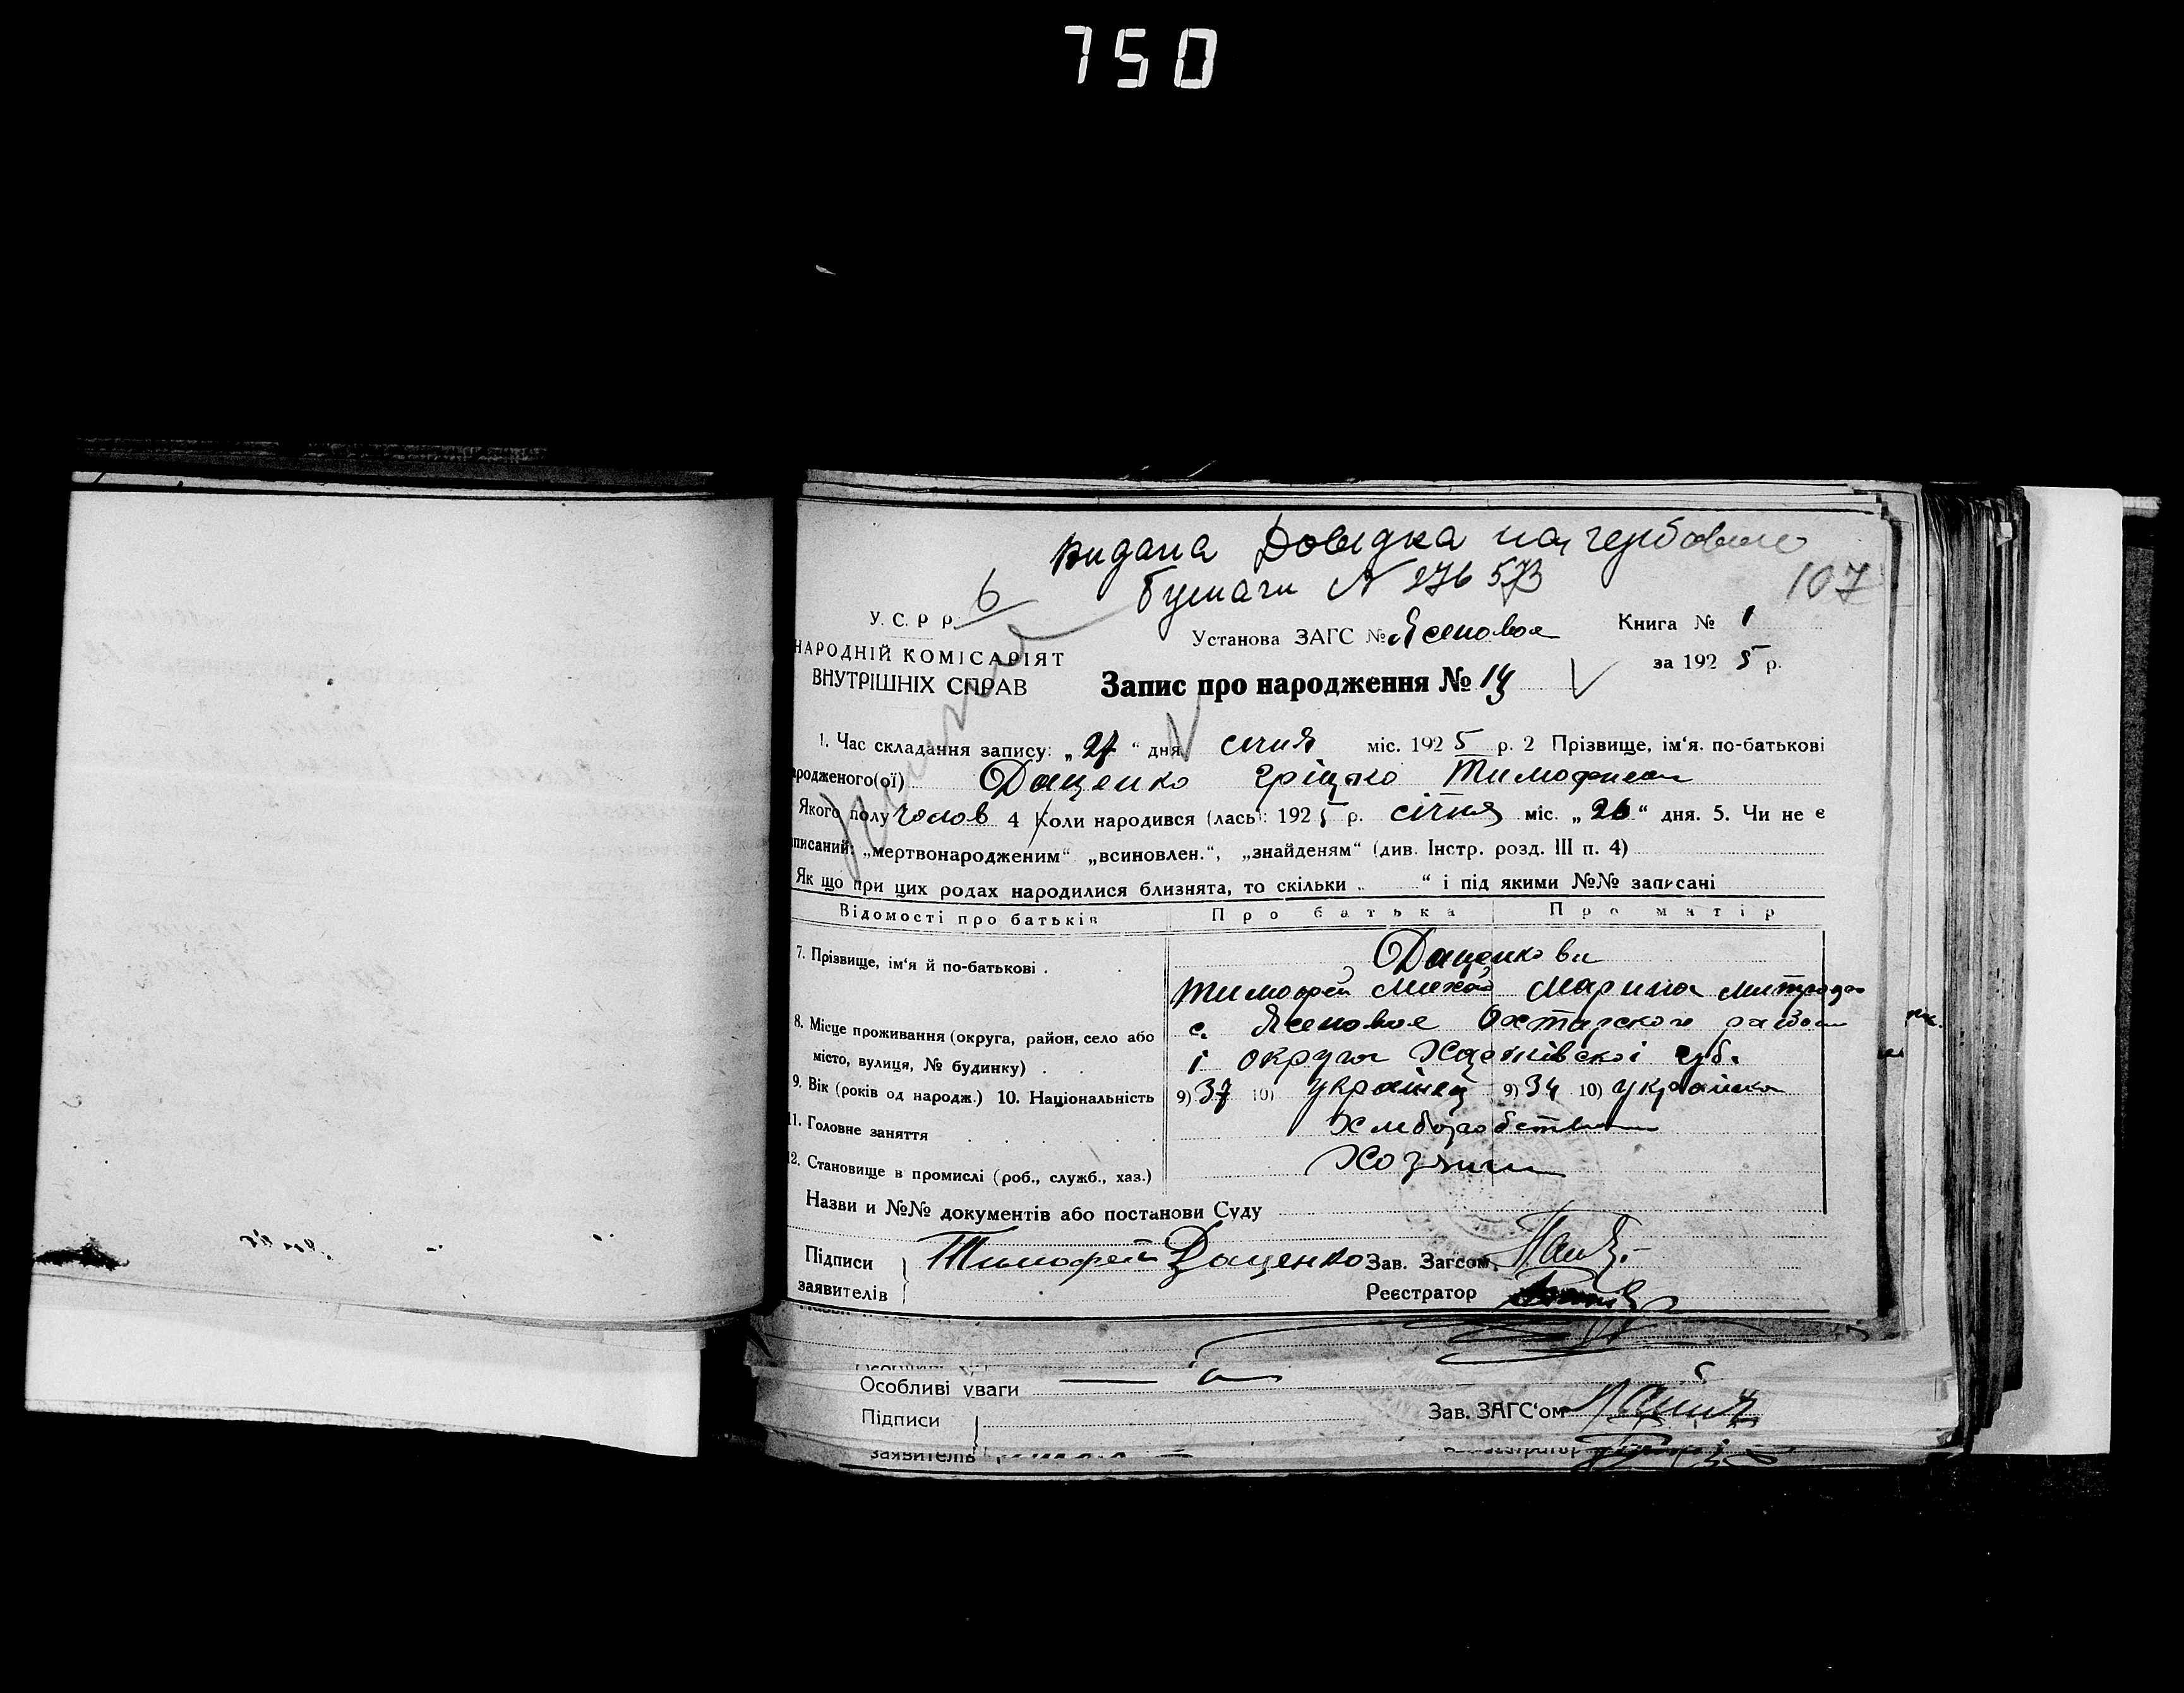 750
видана Довідка на гербовои
бумаги N 276573
107
6
У. С. Р Р
Установа ЗАГС № Ясеновое
Книга № 1
НАРОДНІЙ КОМІСАРІЯТ
ВНУТРІШНІХ СПРАВ
за 1925 р.
Запис про народження № 14
1. Час складання запису: „27“ дня січня міс. 1925 р. 2 Прізвище, ім‘я. по-батькові
ародженого(ої) Даценко Гріцько Тимофиеви
Якого полу чолов 4 Коли народився (лась): 1925 р. січня міс. „26“ дня. 5. Чи не є
аписаний: „мертвонародженим“ „всиновлен.“, „знайденям“ (див. Інстр. розд. III п. 4)
Як що при цих родах народилися близнята, то скільки „ “ і під якими №№ записані
Відомості про батьків Про батька Про матір
7. Прізвище, ім‘я й по-батькові . Даценкови
Тимофей Михай Марина Митрофа
8. Місце проживання (округа, район, село або с. Ясеновое Охтирского района
місто, вулиця, № будинку) . . і округи Харківскоі губ.
9. Вік (років од народж.) 10. Національність 9) 37 10) українец 9) 34 10) українка
11. Головне заняття Хлиборобством
12. Становище в промислі (роб., служб., хаз.) Хозяин
Назви и №№ документів або постанови Суду
Підписи Тимофей Даценко Зав. Загсом
заявителів Реєстратор
Особливі уваги
Підписи Зав. ЗАГС‘ом
заявителів